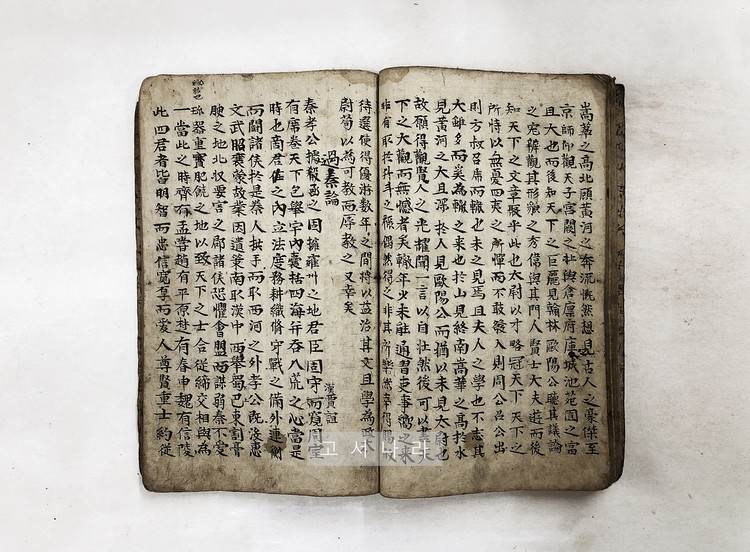 嵩華之高北顧黃河之奔流慨然想見古人之豪傑至
京師仰觀天子宮闕之壯與倉廩府庫城池苑囿之富
且大也而後知天下之巨麗見翰林歐陽公聽其議論
之宏辯觀其形貌之秀偉與其門人賢士大夫遊而後
知天下之文章聚乎此也太尉以才略冠天下天下之
所恃以無憂四夷之所憚而不敢發入則周公召公出
則方叔召虎而轍也未之見焉且夫人之學也不志其
大雖多而奚為轍之來也於山見終南嵩華之高於水
見黃河之大且深於人見歐陽公而猶以未見太尉也
故願得觀賢人之光耀聞一言以自壯然後可以盡天
下之大觀而無憾者矣轍年少未能通習吏事嚮之來
非有取於升斗之祿偶然得之非其所樂然幸得賜歸
待選使得優游數年之間將以益治其文且學為
尉苟以為可教而辱教之又幸矣
過秦論
漢賈誼
秦孝公據殽函之固擁雍州之地君臣固守而窺周室
有席卷天下包舉宇內囊括四海幷吞八荒之心當是
時也商君佐之內立法度務耕織修守戰之備外連衡
而鬪諸侯於是秦人拱手而取西河之外孝公既沒惠
文武昭襄蒙故業因遺策南取漢中西擧蜀巴東割膏
腴之地北收要害之郡諸侯恐懼會盟而謀弱秦不愛
珍器重寶肥饒之地以致天下之士合從締交相與為
一當此之時齊有孟嘗趙有平原楚有春申魏有信陵
此四君者皆明智而忠信寬厚而愛人尊賢重士約從
고서나라